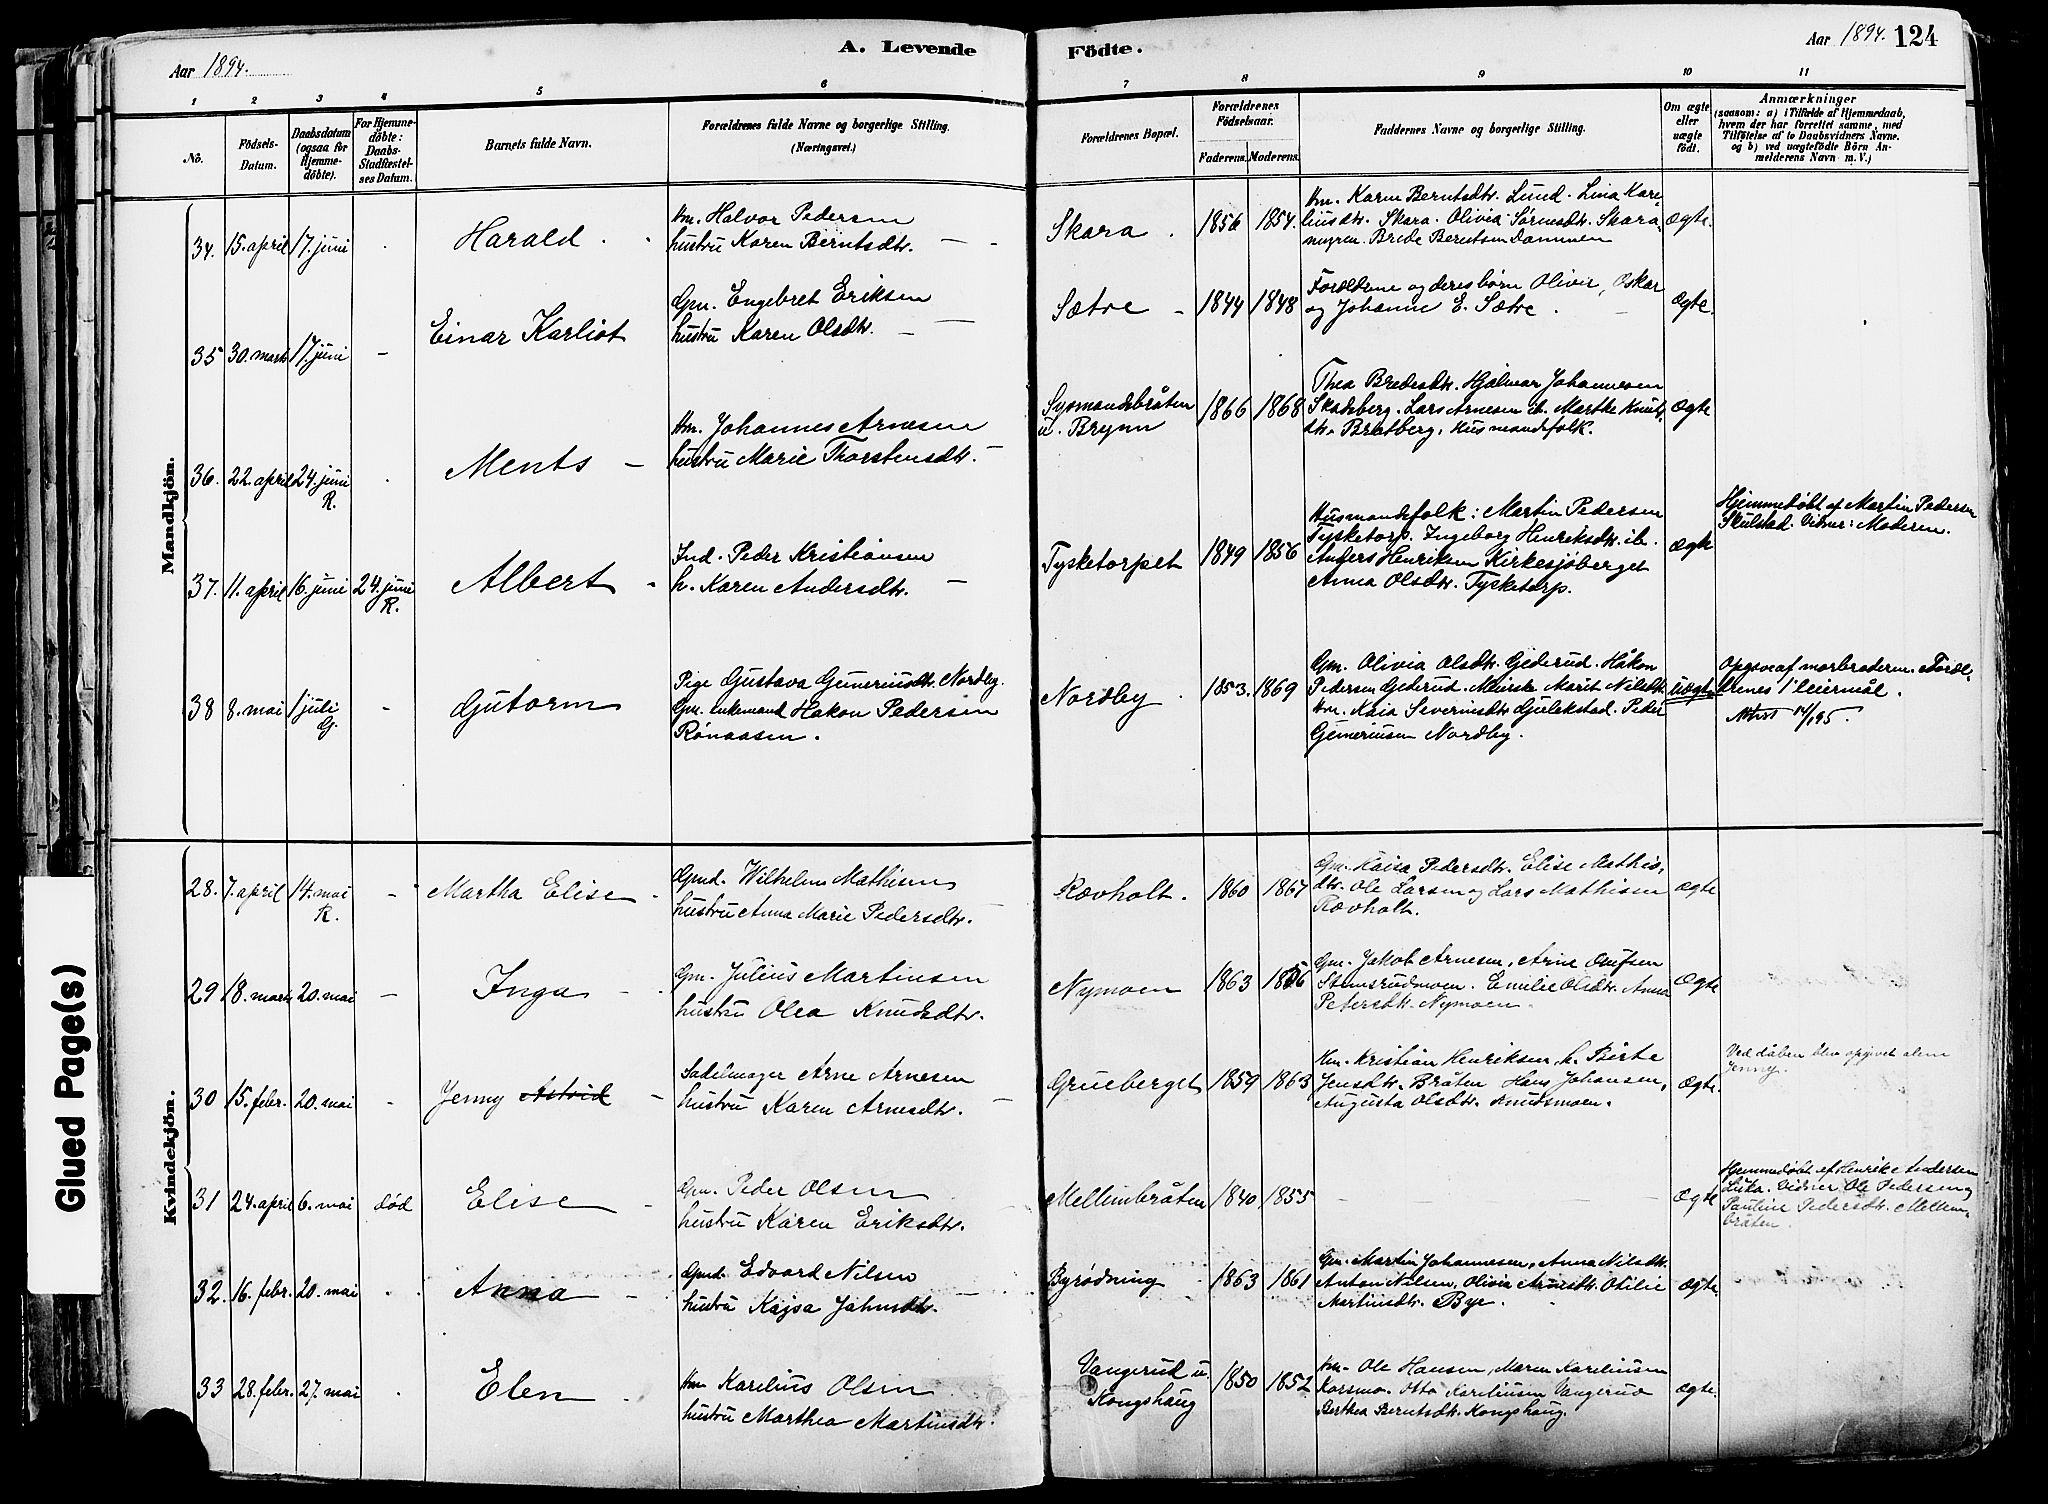 Aar 1894.
A. Levende
Födte.
Aar 1894. 124
1 2 3 4 5 6 7 8 9 10 11
No.
Födsels-Datum.
Daabsdatum (ogsaa for Hjemme-döbte).
For Hjemme-döbte: Daabs-Stadfæstel-ses Datum.
Barnets fulde Navn.
Forældrenes fulde Navne og borgerlige Stilling.
(Næringsvei.)
Forældrenes Bopæl.
Forældrenes Födselsaar.
Faderens. Moderens.
Faddernes Navne og borgerlige Stilling.
Om ægte eller uægte födt.
Anmærkninger
(saasom: a) i Tilfælde af Hjemmedaab,
hvem der har forrettet samme, med
Tilföielse af to Daabsvidners Navne.
og b) ved uægtefödte Börn An-
melderens Navn m. V.)
Mandkjön.
34. 15. april 17. juni Harald
Hm. Halvor Pedersen
hustru Karen Berntsdtr.
Skara. 1856 1854.
Hm. Karen Berntsdtr. Lund. Lina Kare-
liusdtr. Skara. Olivia Sørensdtr. Skara-
myren. Brede Berntsen Dammen
Ægte.
35 30. marts 17. juni - Einar Karliot
Gm. Engebret Eriksen
hustru Karen Olsdtr.
Sætre - 1844 1848
Forældrene og deres børn Oliver, Oskar
og Johanne E. Sætre.
Ægte.
36. 22. april 24. juni R. Ments -
Hm. Johannes Arnesen
hustru Marie Thorstensdtr.
Sysmandsbråten
u. Brynn
1866 1868
Thea Bredesdtr. Hjalmar Johannesen
Skadsberg. Lars Arnesen ib. Marthe Knuts-
dtr. Bratberg, Husmandsfolk.
Ægte
37. 11. april 16. juni 24. juni R. Albert -
Ind. Peder Kristiansen
h. Karen Andersdtr.
Tysketorpet 1849 1856
Husmandsfolk: Martin Pedersen
Tysketorp. Ingeborg Henriksdtr. ib.
Anders Henriksen Kirkesjøberget
Anna Olsdtr. Tysketorp.
Ægte
Hjemmedøbt af Martin Pedersen
Skulstad. Vidner: Moderen.
38 8. mai 1 juli G. - Gutorm
Pige Gustava Guneriusdtr. Nordby.
Gm. enkemand Håkon Pedersen
Rønaasen.
Nordby. 1853. 1869
Gm. Olivia Olsdtr. Gjederud. Håkon
Pedersen Gjederud. Marit Nilsdtr.
Hm. Kaia Severinsdtr. Gjølekstad. Peder
Guneriusen Nordby.
Uægte
Opgave af morbroderen. Foræl-
drenes 1ste leiermål.
14/1 95.
Kvindekjön.
28. 7. april 14. mai R. - Martha Elise
Gmd. Wilhelm Mathisen
hustru Anna Marie Pedersdtr.
Rævholt. 1860 1867
Gm. Kaisa Pedersdtr. Elise Mathis-
dtr. Ole Larsen og Lars Mathisen
Rævholt.
Ægte
29 18. marts 20. mai - Inga -
Gm. Julius Martinsen
hustru Olea Knudsdtr.
Nymoen 1863 1856
Gm. Jakob Arnesen, Arne Olufsen
Stensrudmoen. Emilie Olsdtr. Anna
Petersdtr. Nymoen.
Ægte
30 15. febr. 20. mai - Jenny Astrid -
Sadelmager Arne Arnesen
hustru Karen Arnesdtr.
Grueberget 1859 1863
Hm. Kristian Henriksen, h. Birte
Jensdtr. Bråten Hans Johansen,
Augusta Olsdtr. Knudsmoen.
Ægte.
Ved dåben blev opgivet alene
Jenny.
31 24. april 6. mai død Elise
Gm. Peder Olsen
hustru Karen Eriksdtr.
Mellembråten 1840 1855
Ægte
Hjemmedøbt af Henrike Andersen
Vidner Ole Pedersen og
Pauline Pedersdtr. Mellem-
bråten.
32. 16. febr. 20. mai Anna -
Gmd. Edvard Nilsen
hustru Kajsa Jahnsdtr.
Byrødning 1863 1861
Gm. Martin Johannesen, Anna Nilsdtr.
Anton Nilsen, Olivia Arnesdtr. Otilie
Martinsdtr. Bye.
Ægte.
33 28. febr. 27. mai Elen
Hm. Karelius Olsen
hustru Marthea Martinsdtr.
Vangerud u.
Kongshaug
1850 1852
Hm. Ole Hansen, Maren Kareliusen
Korsmo. Otto Kareliusen Vangerud
Berthea Berntsdtr. Kongshaug.
Ægte.
Glued Page(s)